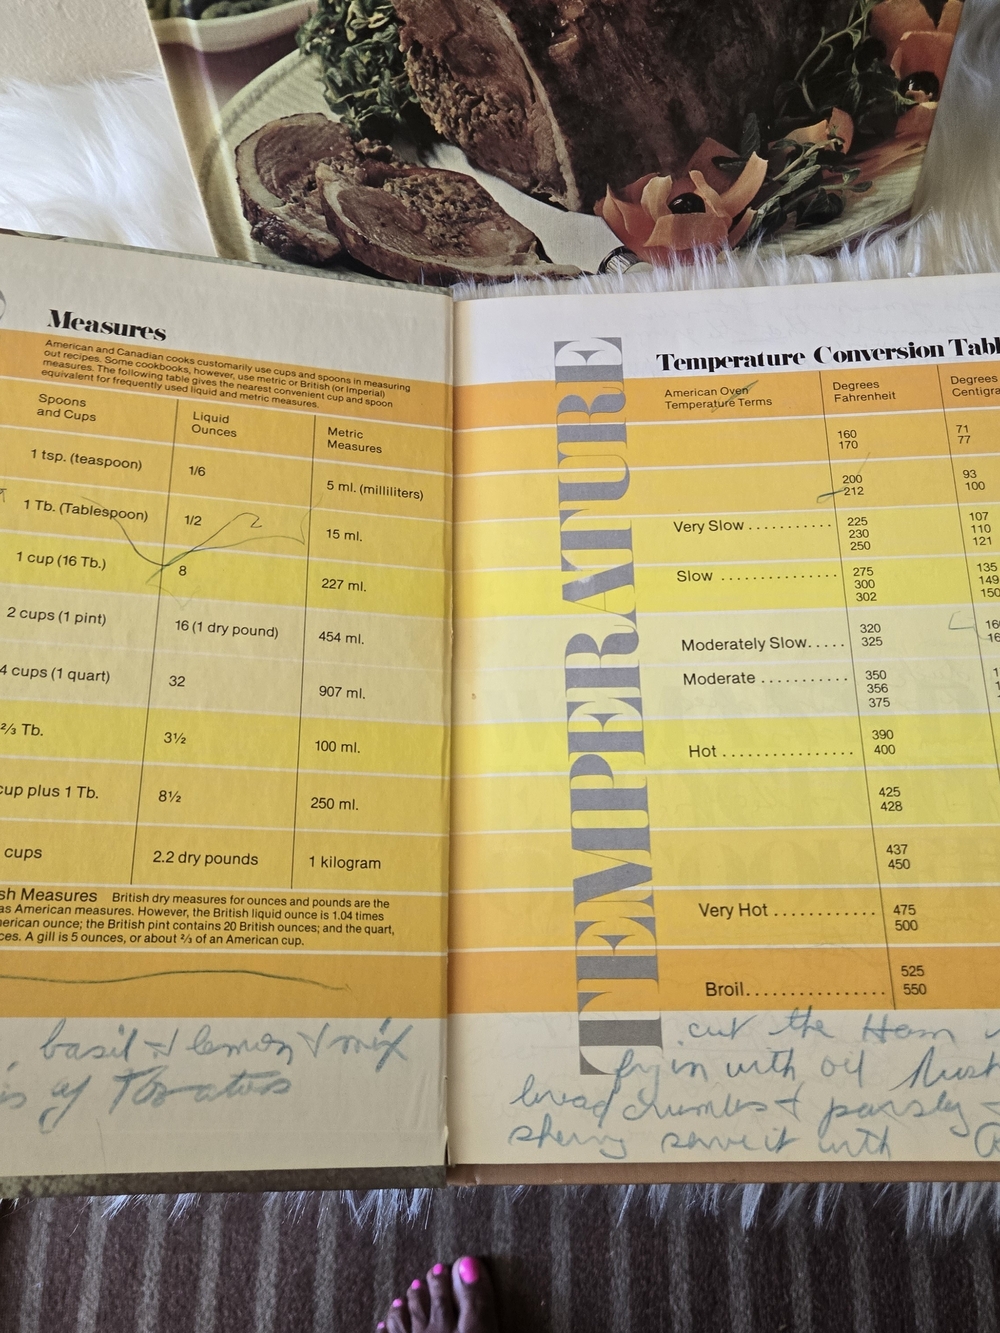 Measures
American and Canadian cooks customarily use cups and spoons in measuring
out recipes. Some cookbooks, however, use metric or British (or Imperial)
measures. The following table gives the nearest convenient cup and spoon
equivalent for frequently used liquid and metric measures.
Spoons and Cups
Liquid Ounces
Metric Measures
1 tsp. (teaspoon) 1/6 5 ml. (milliliters)
1 Tb. (Tablespoon) 1/2 15 ml.
1 cup (16 Tb.) 8 227 ml.
2 cups (1 pint) 16 (1 dry pound) 454 ml.
4 cups (1 quart) 32 907 ml.
⅔ Tb. 3½ 100 ml.
cup plus 1 Tb. 8½ 250 ml.
cups 2.2 dry pounds 1 kilogram
sh Measures British dry measures for ounces and pounds are the
as American measures. However, the British liquid ounce is 1.04 times
erican ounce; the British pint contains 20 British ounces; and the quart,
ces. A gill is 5 ounces, or about ⅔ of an American cup.
basil + lemon + mix
of
TEMPERATURE
Temperature Conversion Tabl
American Oven Temperature Terms
Degrees Fahrenheit
Degrees Centigra
160 71
170 77
200 93
212 100
Very Slow ........... 225 107
230 110
250 121
Slow .............. 275 135
300 149
302 150
Moderately Slow..... 320 16
325 16
Moderate ........... 350 1
356 1
375
Hot ................ 390
400
425
428
437
450
Very Hot ............ 475
500
525
Broil................ 550
cut the Ham
fry in with oil
bread crumbs + parsley +
sherry serve it with